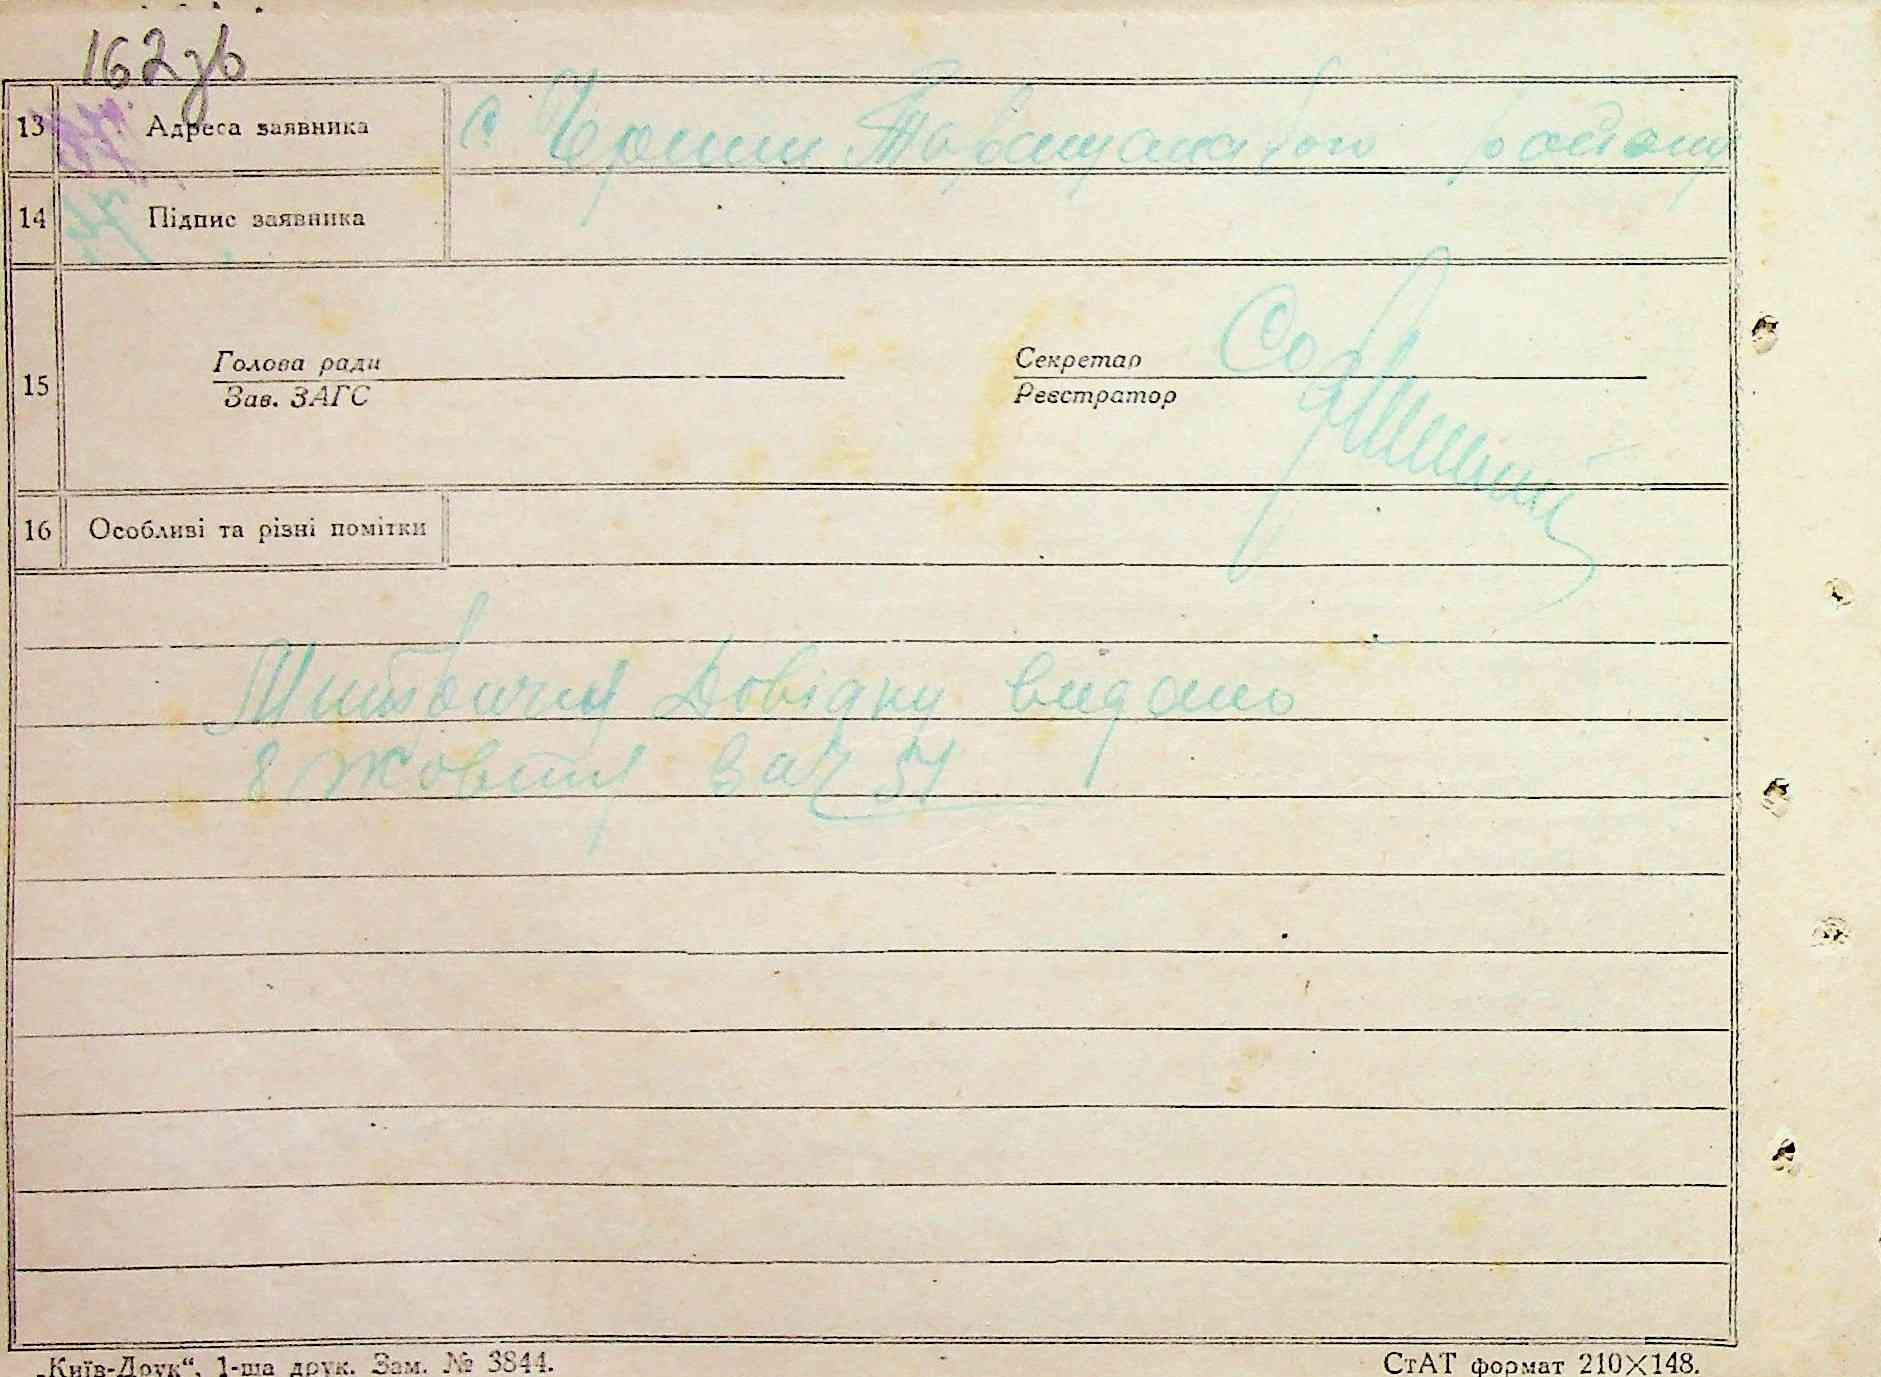 162зв
13 Адреса заявника с. район
14 Підпис заявника
15 Голова ради Секретар
Зав. ЗАГС Реєстратор
16 Особливі та різні помітки
Довідку видано
8 жовтня за ч 51
„Київ-Друк“, 1-ша друк. Зам. № 3844. СтАТ формат 210×148.